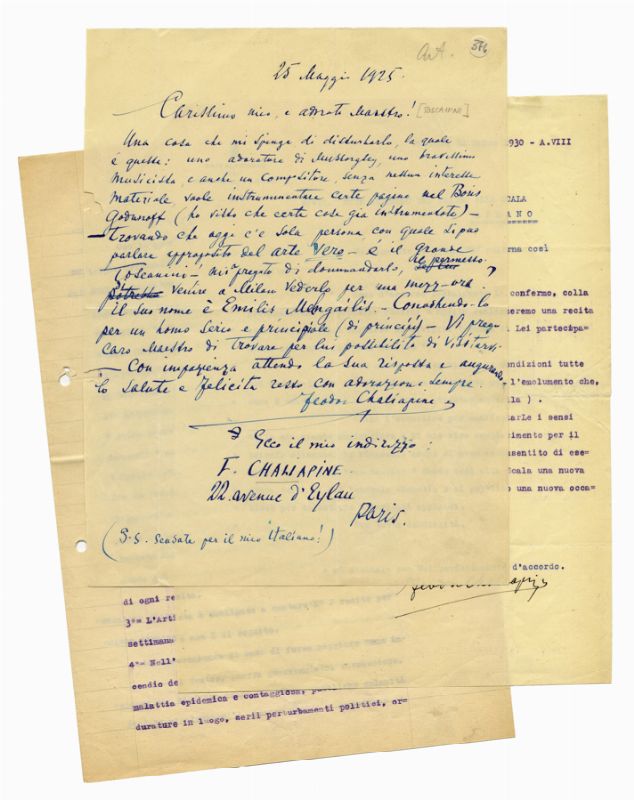 Art. 374
25 Maggio 1925.
Carissimo mio, e adorato Maestro! [TOSCANINI]
Una cosa che mi spinge di disturbarlo, la quale
è questa: uno adoratore di Mussorgsky, uno bravissimo
musicista, e anche un compositore, senza nessun interesse
materiale vuole instrumentare certe pagine nel Boris
Godunoff (ho visto che certe cose già instrumentate) –
trovando che oggi c'è sola persona con quale si può
parlare appropogito del arte Vero – é il grande
Toscanini – mi pregato di dommandarlo, se permesso
venire a Milan vederlo per un mezz-ora?
il suo nome è Emilis Mengailis. – Conoschendo-lo
per un homo serio e principiale (di principi) – Vi prego
caro Maestro di trovare per lui possibilità di visitarsi –
– Con impazienza attendo la sua risposta e augurando
lo salute e felicita resto con adorazione sempre.
Feodor Chaliapine
Ecco il mio indirizzo:
F. CHALIAPINE.
22. avenue d'Eylau
Paris.
(P.S. Scusate per il mio "italiano!")
930 - A.VIII
CALA
ANO
rna così
confermo, colla
eremo una recita
Lei partecipa=
ondizioni tutte
l'emolumento che,
ala ).
tarLe i sensi
cimento per il
nsentito di ese=
Scala una nuova
o una nuova occa=
d'accordo.
di ogni re
3°= L'Arti
settimana
4°= Nell'
cendio de
malattia epidemica e contagiosa,
durature in luogo, serii perturbamenti politici, or=